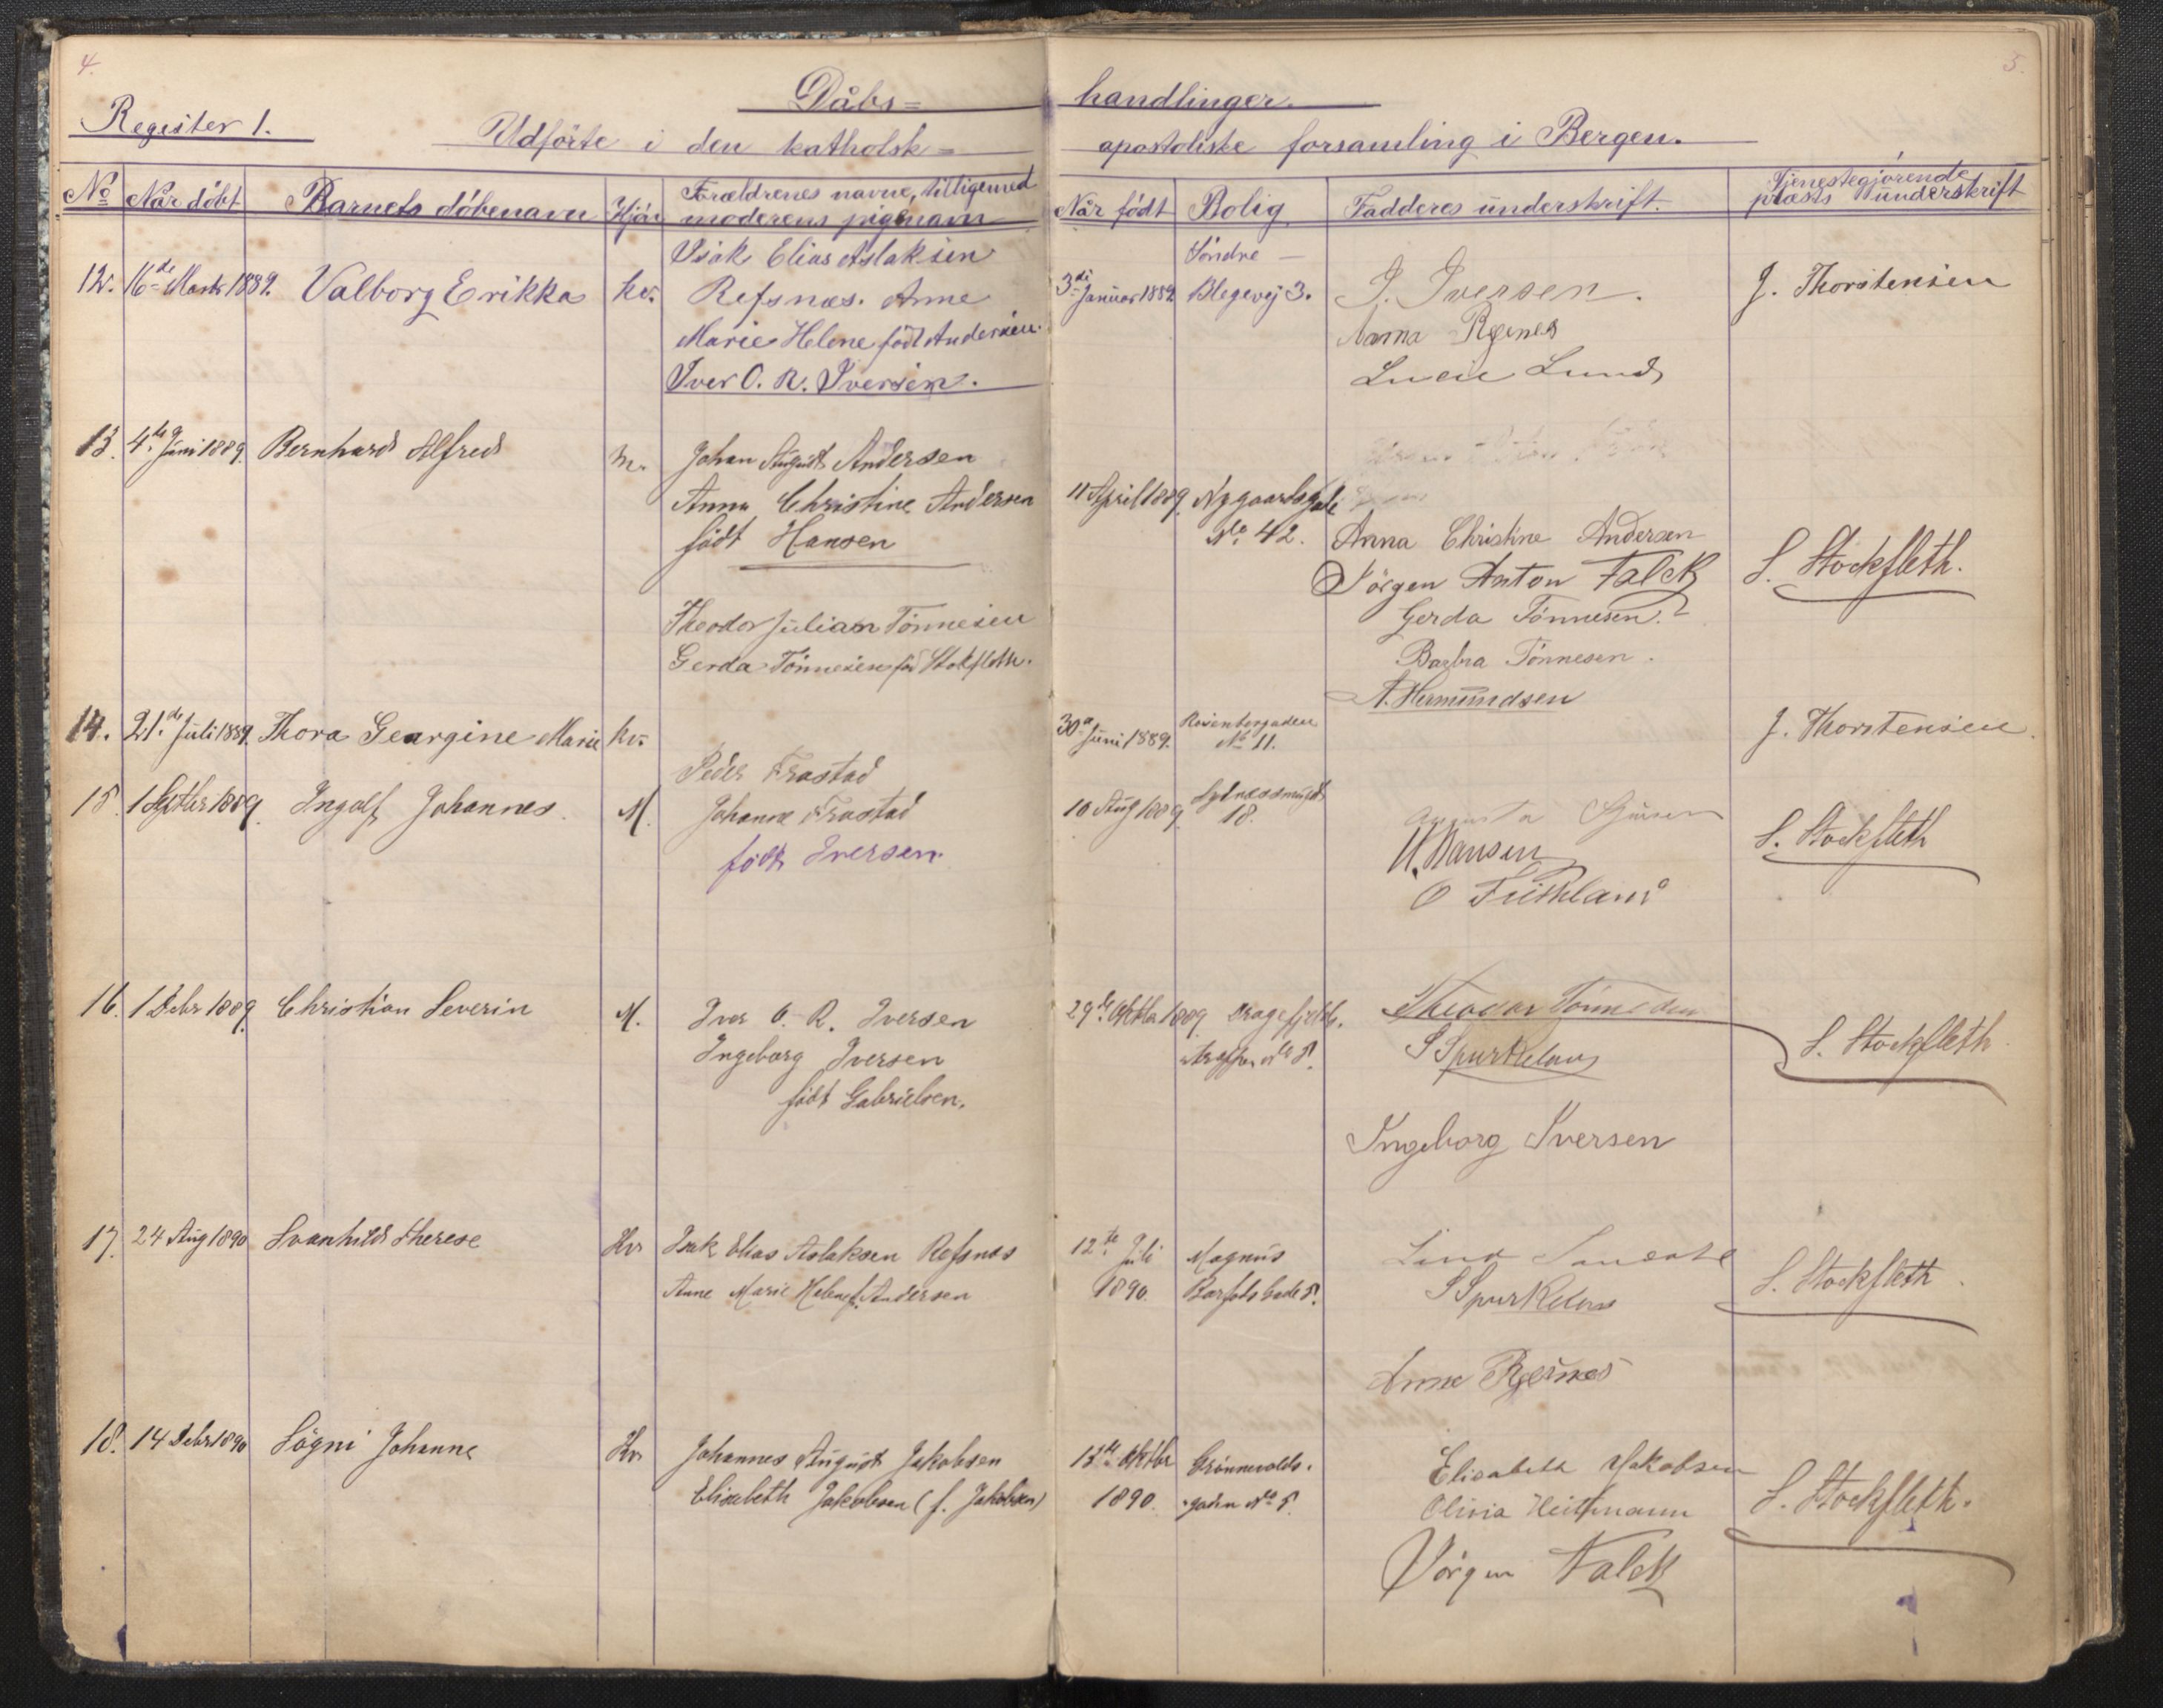 4.
5.
Register 1.
Dåbs=handlinger.
Udförte i den katholsk=apostoliske forsamling i Bergen.
No Når döbt Barnets döbenavn Kjön Forældrenes navne, tilligemed moderens pigenavn Når födt Bolig Fadderes underskrift. Tjenestegjörende præsts underskrift
12. 16de Marts 1889. Valborg Erikka kv. 3die Januar 1889 Söndre Blegevej 3. J. Thorstensen
Isak Elias Aslaksen
Refsnæs. Anne
Marie Helene födt Andersen.
Iver O. R. Iversen.
I. Iversen.
Anna
Lucie Lund
13. 4de Juni 1889. Bernhard Alfred m. 11 April 1889. Nygaardsgade No. 42. S. Stockfleth.
Johan August Andersen
Anna Christine Andersen
födt Hansen
Anna Christine Andersen
Jörgen Anton Falck
Gerda Tönnesen.
Barbra Tönnesen.
A. Hermundsen
Theodor Julian Tönnesen
Gerda Tönnesen fød Stokfleth.
14. 21de Juli 1889. Thora Geargine Marie kv. 30te Juni 1889. Rosenbergaden No 11. J. Thorstensen.
15. 1 Septbr 1889. Ingolf Johannes. M. 10 Aug 1889. 18. S. Stockfleth
Peder Frostad
Johanne Frostad
födt Iversen.
Augusta
H. Hansen
O
16. 1 Debr 1889. Christian Severin M. 29de Oktbr 1889 S. Stockfleth.
Iver O. R. Iversen
Ingeborg Iversen
födt Gabrielsen.
Theodor Tönnesen
S Spurkeland
Ingeborg Iversen
17. 24 Aug 1890 Svanhild Therese Kv 12te Juli 1890. Magnus Barfots Gade 5. S. Stockfleth.
Isak Elias Aslaksen Refsnæs
Anne Marie Helene f. Andersen
Lina
S Spurkeland
Anne
18. 14 Debr 1890 Sögni Johanne Kv 13de Oktbr 1890. Grönnevolds-gaden No 5. S. Stockfleth.
Johannes August Jakobsen
Elisabeth Jakobsen (f. Jakobsen)
Elisabeth Jakobsen
Olivia Heitmann
Jörgen Falck